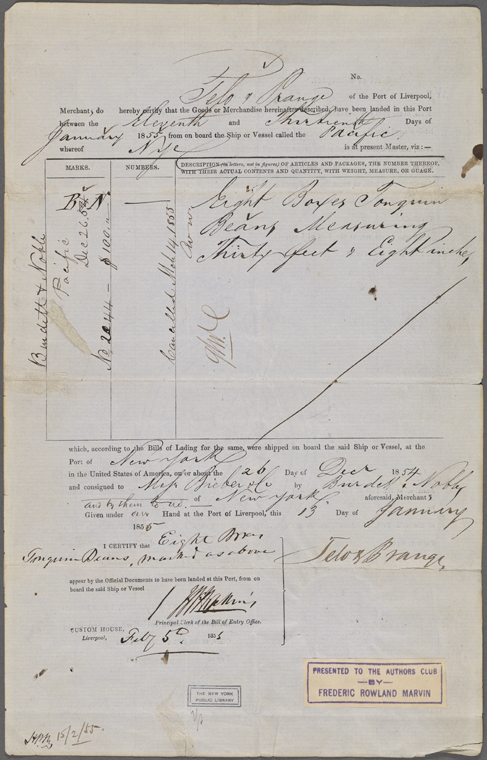 No.
Felo & Prange of the Port of Liverpool,
Merchants, do hereby certify that the Goods or Merchandise hereinafter described, have been landed in this Port
between the Eleventh and Thirteenth Days of
January 1855 from on board the Ship or Vessel called the Pacific
whereof Nye is at present Master, viz:—
MARKS.
NUMBERS.
DESCRIPTION (in letters, not in figures) OF ARTICLES AND PACKAGES, THE NUMBER THEREOF,
WITH THEIR ACTUAL CONTENTS AND QUANTITY, WITH WEIGHT, MEASURE, OR GUAGE.
B & N —
Eight Boxes Tonquin
Beans Measuring
Thirty feet & Eight inches
Burdett & Noble
Pacific
Dec 26, 54
No 2044 — $100
Cancelled Mch 14, 1855
which, according to the Bills of Lading for the same, were shipped on board the said Ship or Vessel, at the
Port of New York
in the United States of America, on or about the 26 Day of Decr 1854
and consigned to Mess by Burdett & Noble
and by them to us — of New York aforesaid, Merchants
Given under our Hand at the Port of Liverpool, this 15 Day of January
1855
I CERTIFY that Eight Boxes
Tonquin Beans, marked as above
appear by the Official Documents to have been landed at this Port, from on
board the said Ship or Vessel
Felo & Prange,
Principal Clerk of the Bill of Entry Office.
CUSTOM HOUSE,
Liverpool, Feby 5th 1855
THE NEW YORK
PUBLIC LIBRARY
PRESENTED TO THE AUTHORS CLUB
—BY—
FREDERIC ROWLAND MARVIN
15/2/55.